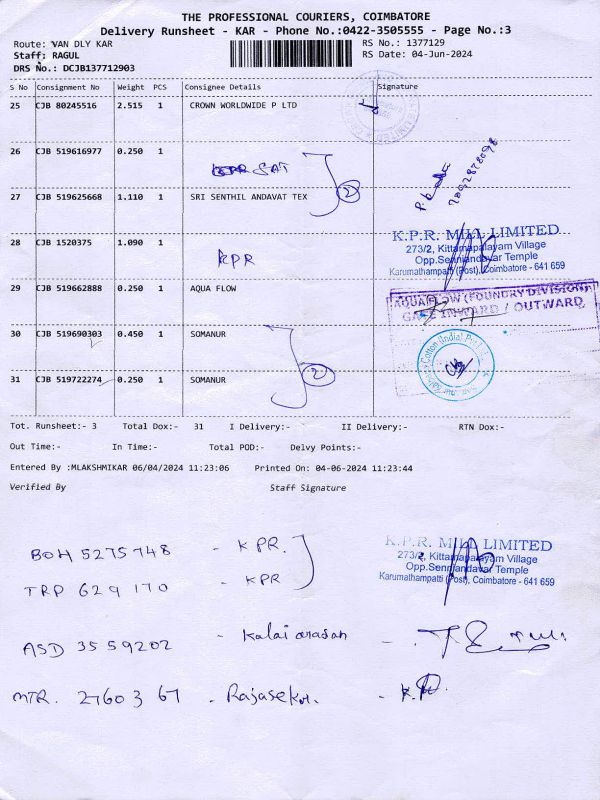 THE PROFESSIONAL COURIERS, COIMBATORE
Delivery Runsheet - KAR - Phone No.:0422-3505555 - Page No.:3
Route: VAN DLY KAR RS No.: 1377129
Staff: RAGUL RS Date: 04-Jun-2024
DRS No.: DCJB137712903
S No Consignment No Weight PCS Consignee Details Signature
25 CJB 80245516 2.515 1 CROWN WORLDWIDE P LTD
26 CJB 519616977 0.250 1
7092878098
27 CJB 519625668 1.110 1 SRI SENTHIL ANDAVAT TEX 2
K.P.R. MILL LIMITED
273/2, Kittampalayam Village
Opp.Senniandavar Temple
Karumathampatti (Post), Coimbatore - 641 659
28 CJB 1520375 1.090 1 KPR
29 CJB 519662888 0.250 1 AQUA FLOW
AQUAFLOW (FOUNDRY DIVISION)
GATE INWARD / OUTWARD
30 CJB 519690303 0.450 1 SOMANUR
Cotton (India) Pvt Ltd
31 CJB 519722274 0.250 1 SOMANUR 2
Tot. Runsheet:- 3 Total Dox:- 31 I Delivery:- II Delivery:- RTN Dox:-
Out Time:- In Time:- Total POD:- Delvy Points:-
Entered By :MLAKSHMIKAR 06/04/2024 11:23:06 Printed On: 04-06-2024 11:23:44
Verified By Staff Signature
K.P.R. MILL LIMITED
273/2, Kittampalayam Village
Opp.Senniandavar Temple
Karumathampatti (Post), Coimbatore - 641 659
BOH 5275748 - KPR.
TRP 629170 - KPR
ASD 3559202 - Kalaiarasan -
MTR. 2760367 - Rajasekar. -